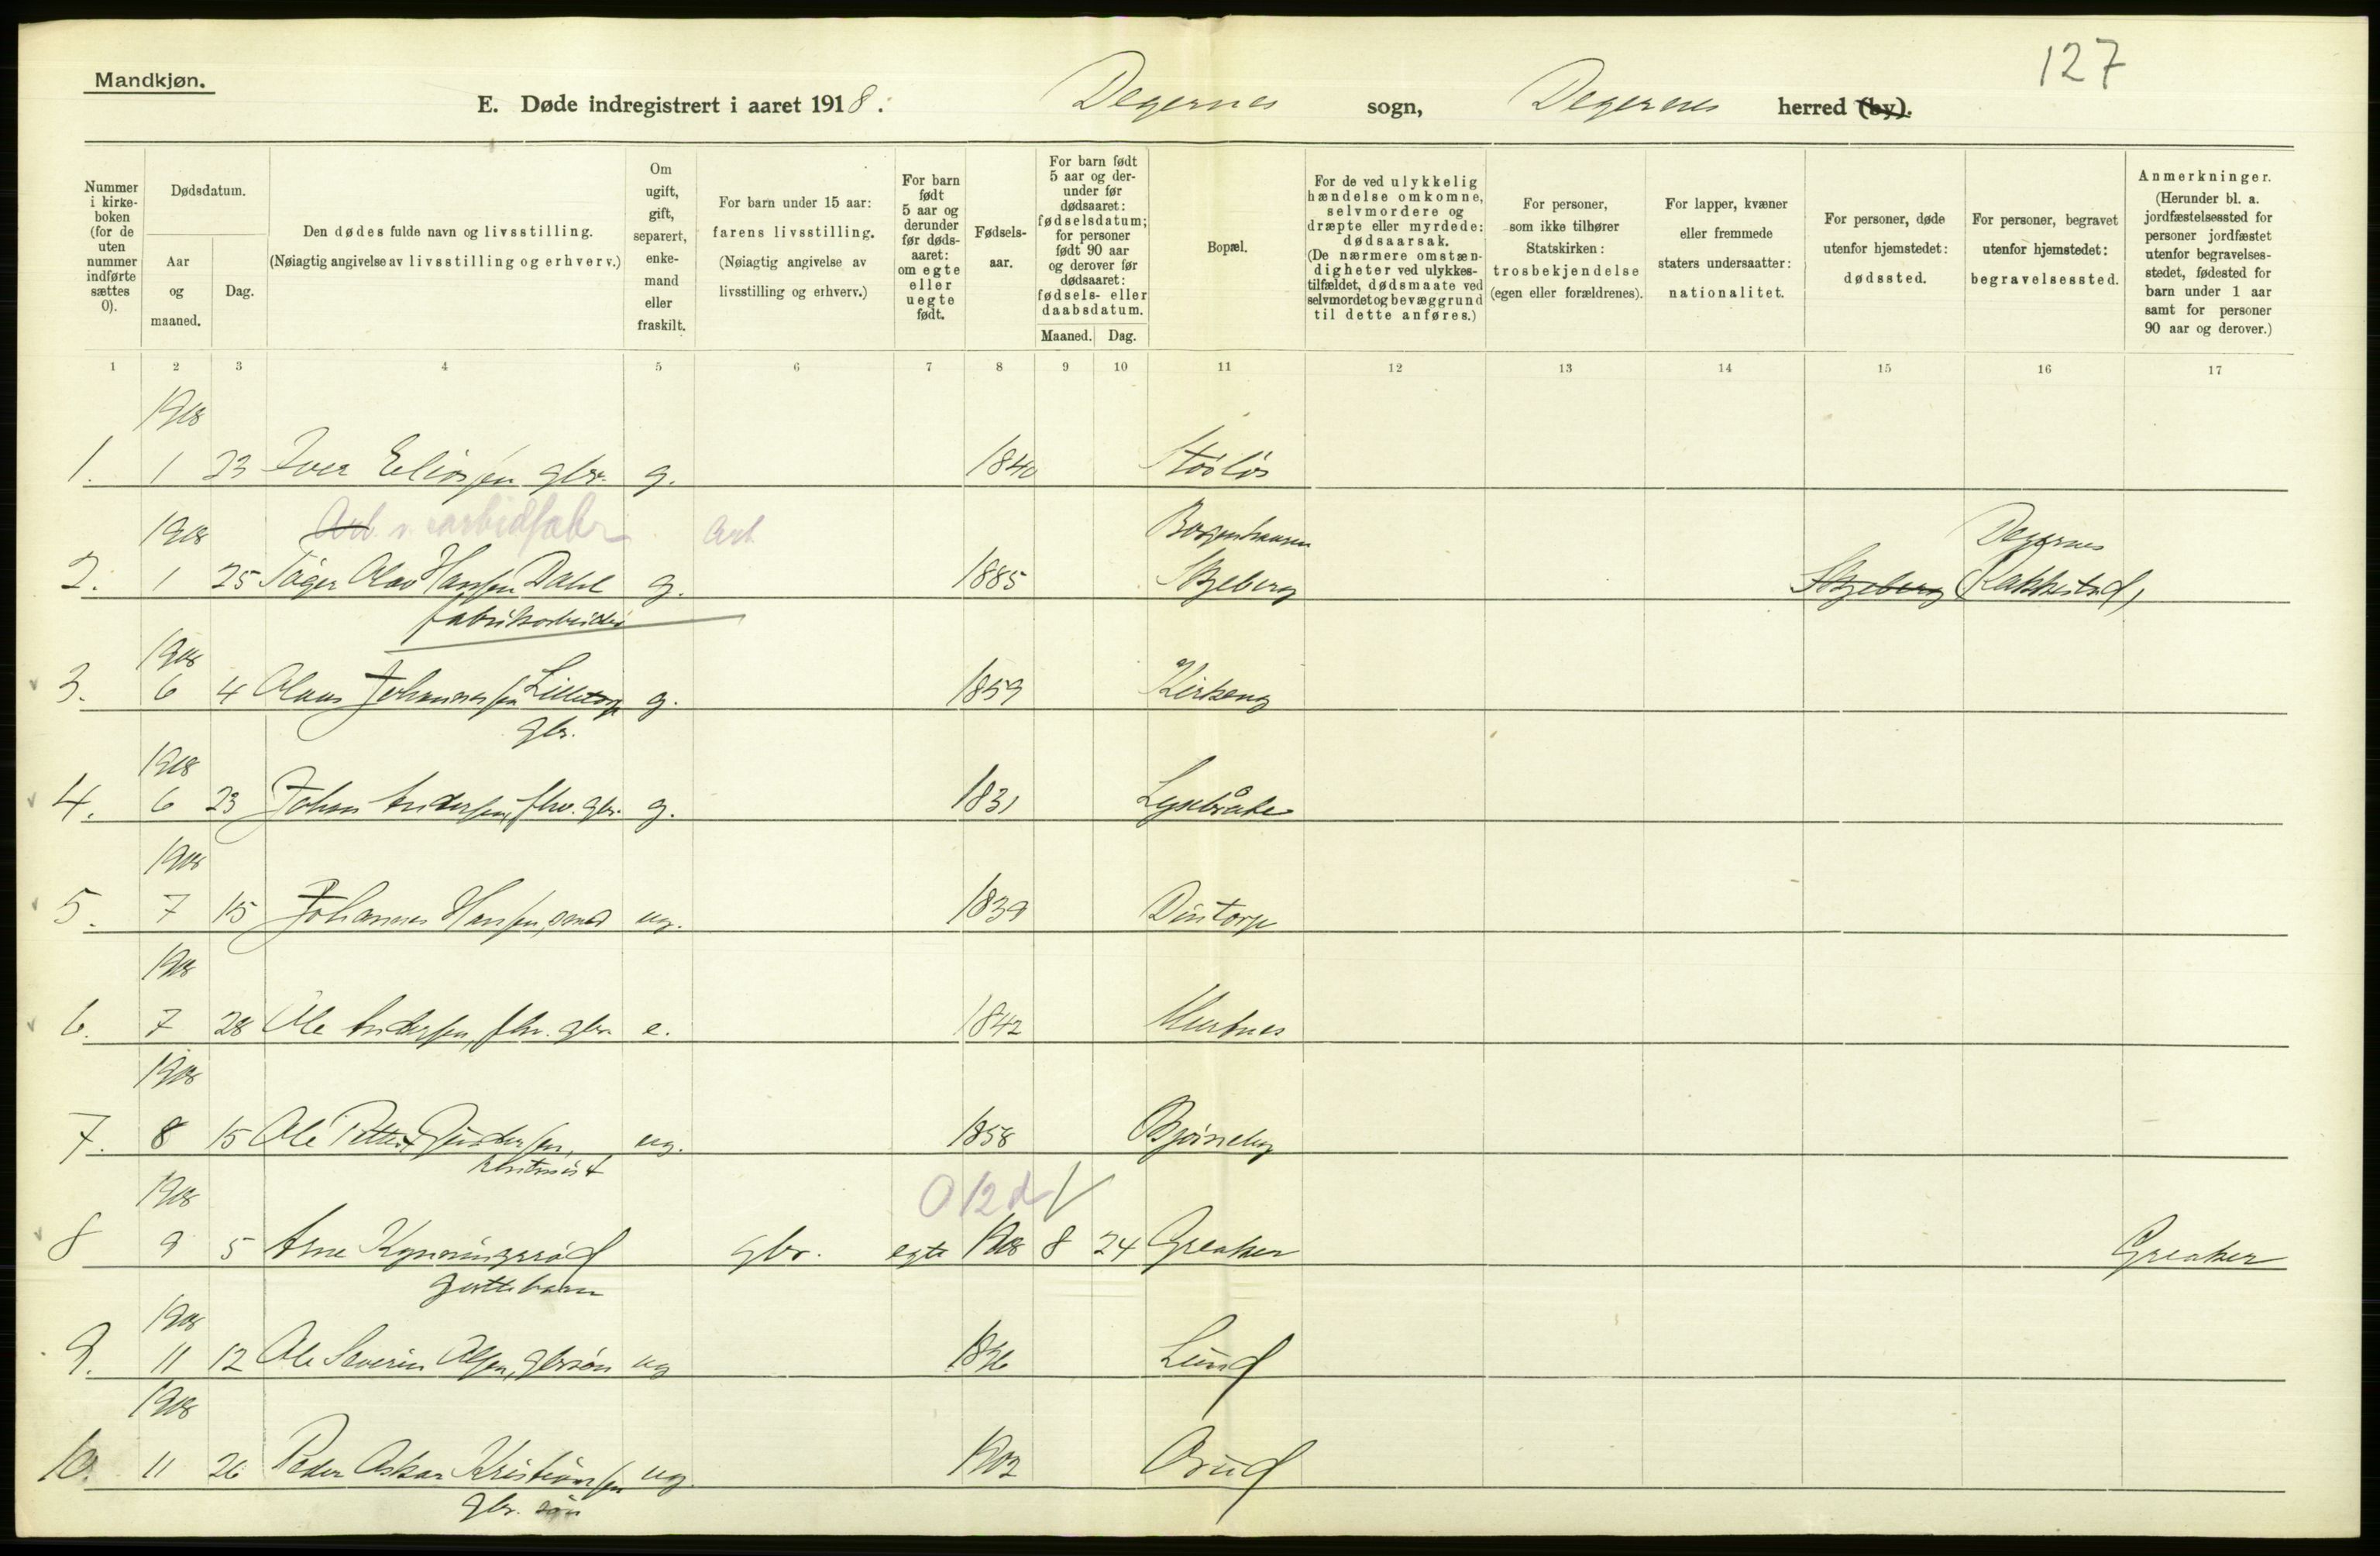 127
Mandkjøn.
E. Døde indregistrert i aaret 1918. Degernes sogn, Degernes herred (by).
Nummer i kirke-boken (for de uten nummer indførte sættes 0).
Dødsdatum.
Aar og maaned.
Dag.
Den dødes fulde navn og livsstilling.
(Nøiagtig angivelse av livsstilling og erhverv.)
Om ugift, gift, separert, enke-mand eller fraskilt.
For barn under 15 aar: farens livsstilling. (Nøiagtig angivelse av livsstilling og erhverv.)
For barn født 5 aar og derunder før døds-aaret: om egte eller uegte født.
Fødsels-aar.
For barn født 5 aar og der-under før dødsaaret: fødselsdatum; for personer født 90 aar og derover før dødsaaret: fødsels- eller daabsdatum.
Maaned. Dag.
Bopæl.
For de ved ulykkelig hændelse omkomne, selvmordere og dræpte eller myrdede: dødsaarsak. (De nærmere omstæn-digheter ved ulykkes-tilfældet, dødsmaate ved selvmordet og bevæggrund til dette anføres.)
For personer, som ikke tilhører Statskirken: trosbekjendelse (egen eller forældrenes).
For lapper, kvæner eller fremmede staters undersaatter: nationalitet.
For personer, døde utenfor hjemstedet: dødssted.
For personer, begravet utenfor hjemstedet: begravelsessted.
Anmerkninger. (Herunder bl. a. jordfæstelsessted for personer jordfæstet utenfor begravelses-stedet, fødested for barn under 1 aar samt for personer 90 aar og derover.)
1 2 3 4 5 6 7 8 9 10 11 12 13 14 15 16 17
1918
1. 1 23 Iver Eliassen gbr. g. 1840
1918 Arb. v. carbidfabr Arb Borgenhaugen Degernes
2. 1 25 Olav Hansen Dahl g. 1885 Skjeberg Skjeberg (Rakkestad)
fabrikarbeider
1918
3. 6 4 Olaus Johannessen Lilletorp g. 1859 Kirkeng
gbr.
1918
4. 6 23 Johan Andersen, fhv. gbr. g. 1831 Lysebråte
1918
5. 7 15 Johannes Hansen, smed ug. 1839 Dintorp
1918
6. 7 28 Ole Andersen, fhv. gbr. e. 1842
1918
7. 8 15 Ole Petter Gundersen, ug. 1858 Bjørneby
1918 0 12 d
8 9 5 Arne Kynningsrød gbr. egte 1918 8 24 Greaker Greaker
guttebarn
1918
9. 11 12 Ole Severin Olsen, gbrsøn ug 1896 Lund
1918
10. 11 26 Peder Oskar Kristiansen ug. 1902 Orud
gbr. søn